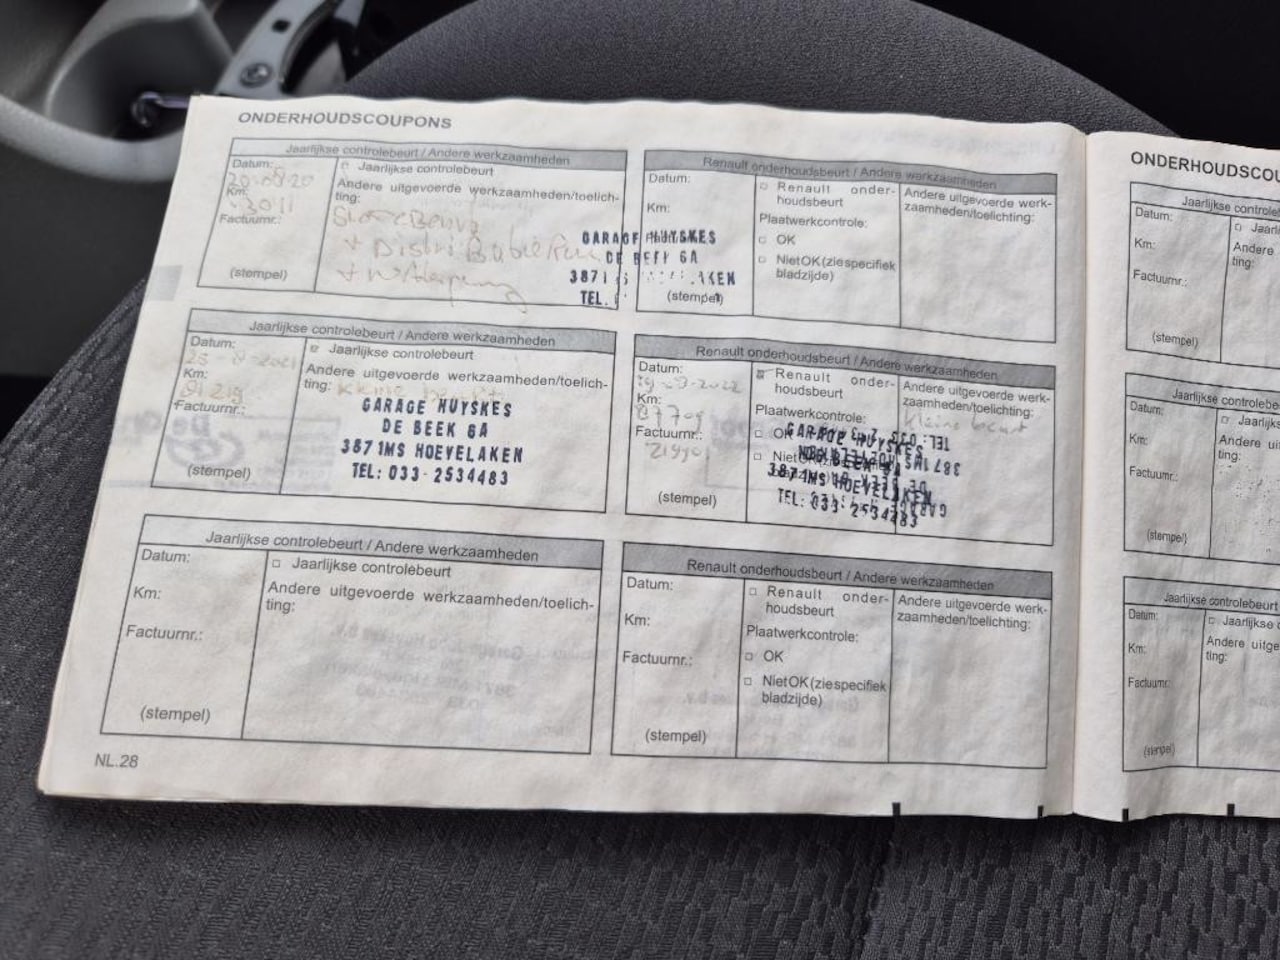 ONDERHOUDSCOUPONS
Jaarlijkse controlebeurt / Andere werkzaamheden
Datum:
20-08-20
Km:
Factuurnr.:
(stempel)
Jaarlijkse controlebeurt
Andere uitgevoerde werkzaamheden/toelich-
ting:
+ Distri
+ W
GARAGE HUYSKES
DE BEEK 6A
3871 LAKEN
TEL.
Renault onderhoudsbeurt / Andere werkzaamheden
Datum:
Km:
(stempel)
Renault onder-
houdsbeurt
Plaatwerkcontrole:
OK
Niet OK (zie specifiek
bladzijde)
Andere uitgevoerde werk-
zaamheden/toelichting:
Jaarlijkse controlebeurt / Andere werkzaamheden
Datum:
2021
Km:
91219
Factuurnr.:
(stempel)
Jaarlijkse controlebeurt
Andere uitgevoerde werkzaamheden/toelich-
ting: Kleine beurt
GARAGE HUYSKES
DE BEEK 6A
3871MS HOEVELAKEN
TEL: 033-2534483
Renault onderhoudsbeurt / Andere werkzaamheden
Datum:
19-09-2022
Km:
Factuurnr.:
(stempel)
Renault onder-
houdsbeurt
Plaatwerkcontrole:
OK
Niet
Andere uitgevoerde werk-
zaamheden/toelichting:
Kleine beurt
GARAGE HUYSKES
DE BEEK 6A
3871MS HOEVELAKEN
TEL: 033-2534483
Jaarlijkse controlebeurt / Andere werkzaamheden
Datum:
Km:
Factuurnr.:
(stempel)
Jaarlijkse controlebeurt
Andere uitgevoerde werkzaamheden/toelich-
ting:
Renault onderhoudsbeurt / Andere werkzaamheden
Datum:
Km:
Factuurnr.:
(stempel)
Renault onder-
houdsbeurt
Plaatwerkcontrole:
OK
Niet OK (zie specifiek
bladzijde)
Andere uitgevoerde werk-
zaamheden/toelichting:
NL.28
ONDERHOUDSCOU
Jaarlijkse controle
Datum:
Km:
Factuurnr.:
(stempel)
Jaarli
Andere
ting:
Jaarlijkse controlebe
Datum:
Km:
Factuurnr.:
(stempel)
Jaarlijks
Andere ui
ting:
Jaarlijkse controlebeurt
Datum:
Km:
Factuurnr.:
(stempel)
Jaarlijkse c
Andere uitge
ting: